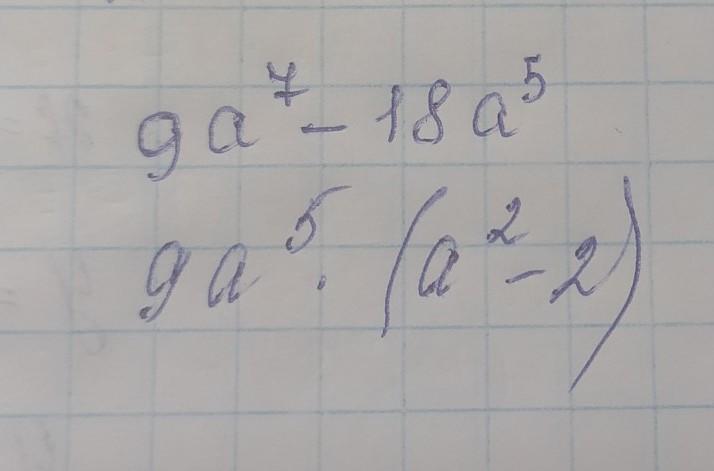 9a⁷ - 18a⁵
9a⁵ · (a² - 2)